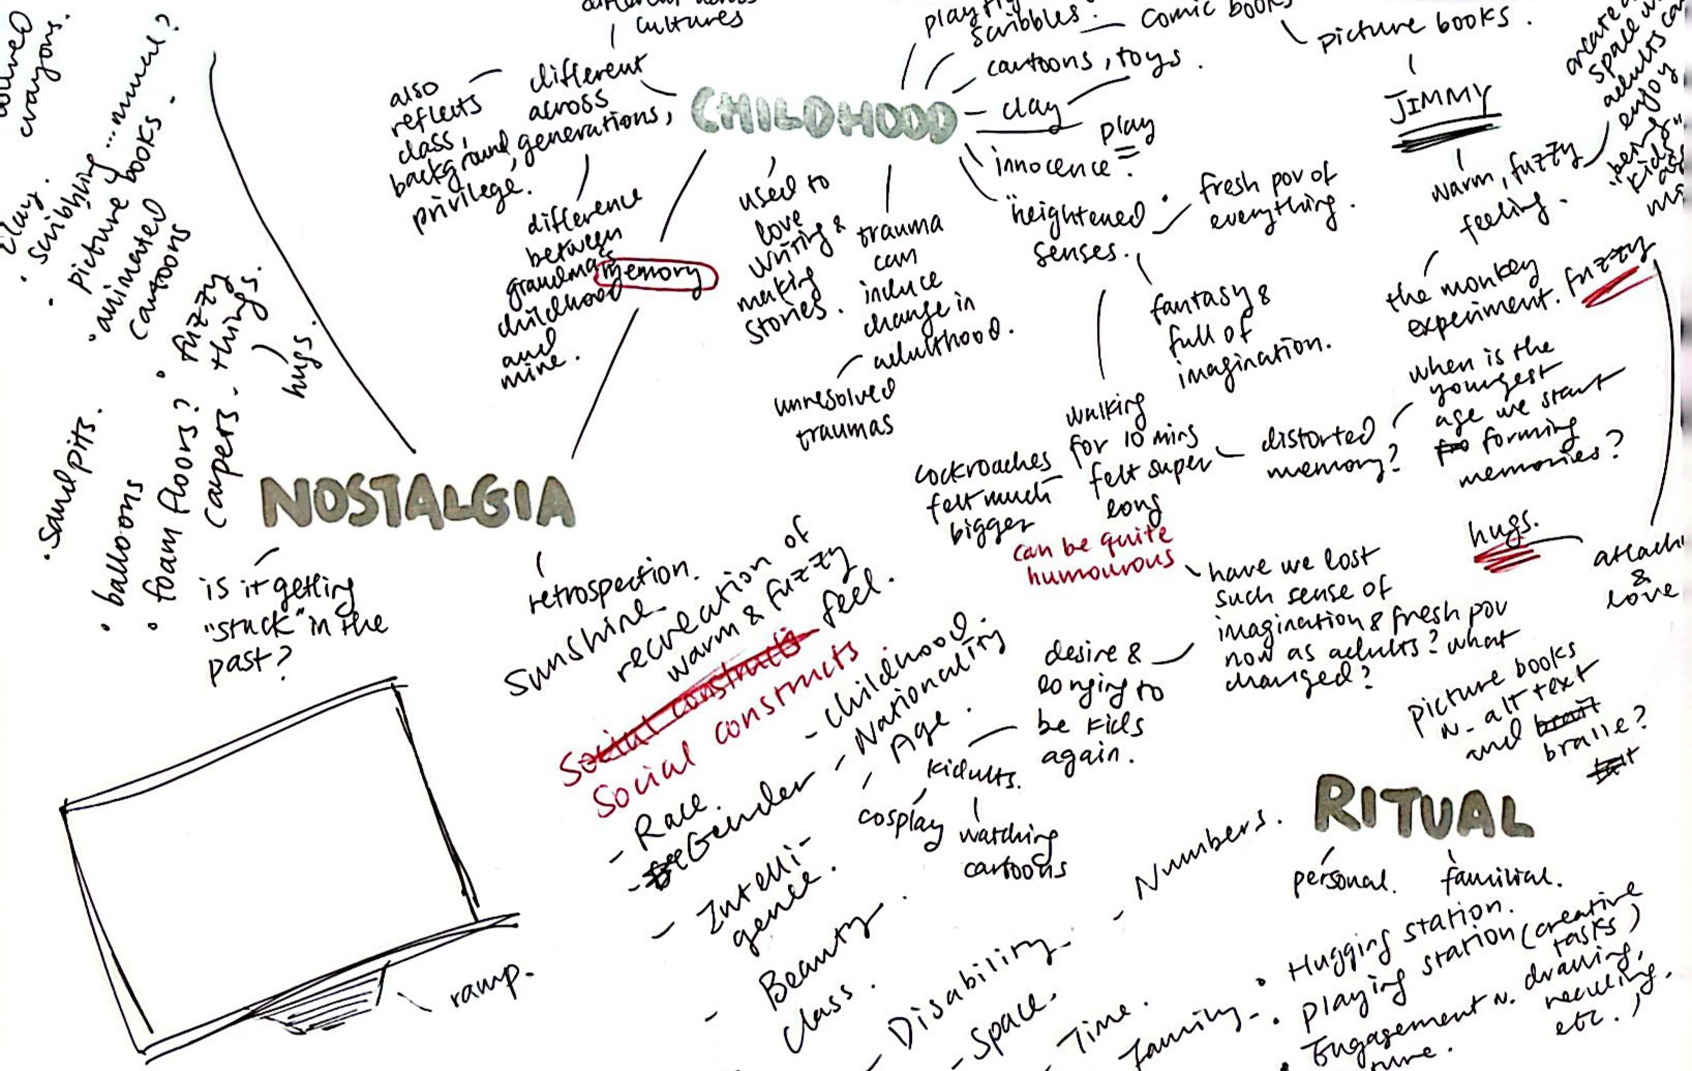 crayons.
clay.
• scribbling...mural?
• picture books.
• animated
cartoons
• fuzzy
things.
hugs.
• sandpits.
• balloons
• foam floors?
cultures
different
across
generations,
also
reflects
class,
background,
privilege.
difference
between
grandma's
childhood
and
mine.
memory
CHILDHOOD
used to
love
writing &
making
stories.
trauma
can
induce
change in
adulthood.
unresolved
traumas
scribbles.
comic books
cartoons, toys.
clay
play
innocence.
"heightened"
senses.
fresh pov of
everything.
fantasy &
full of
imagination.
walking
for 10 mins
felt super
long
cockroaches
felt much
bigger
can be quite
humourous
distorted
memory?
when is the
youngest
age we start
forming
memories?
have we lost
such sense of
imagination & fresh pov
now as adults? what
changed?
desire &
longing to
be kids
again.
kidults.
cosplay
watching
cartoons
picture books.
JIMMY
warm, fuzzy
feeling.
space
adults can
enjoy
"being
kids"
the monkey
experiment.
fuzzy
hugs.
&
love
picture books
w. alt text
and
bralle?
NOSTALGIA
is it getting
"stuck" in the
past?
retrospection.
sunshine
recreation of
warm & fuzzy
feel.
Social constructs
Social constructs
- Childhood.
- Nationality
- Age.
- Race.
- Gender
- Intelli-
gence.
- Beauty
- Class.
- Disability
- Space.
- Time.
- Numbers.
ramp.
RITUAL
personal.
familial.
• Hugging station.
• playing station (creative
tasks)
Engagement w. drawing,
etc.)